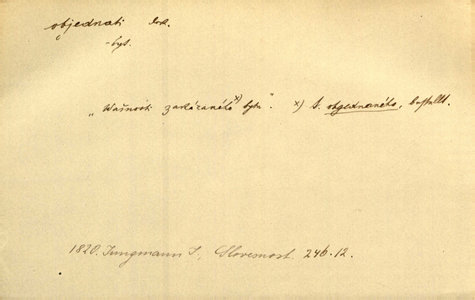 objednati dok.
-byt.
„Wášnosti zakázaného x) bytu". x) t. obgednaného, bestellt.
1820. Jungmann J., Slovesnost. 246.12.